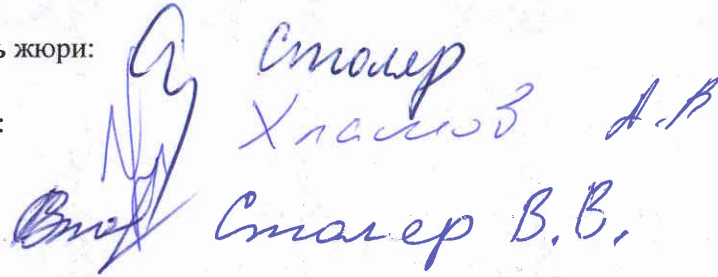 ь жюри: Столер
: Хламов А.В
Столер В.В.